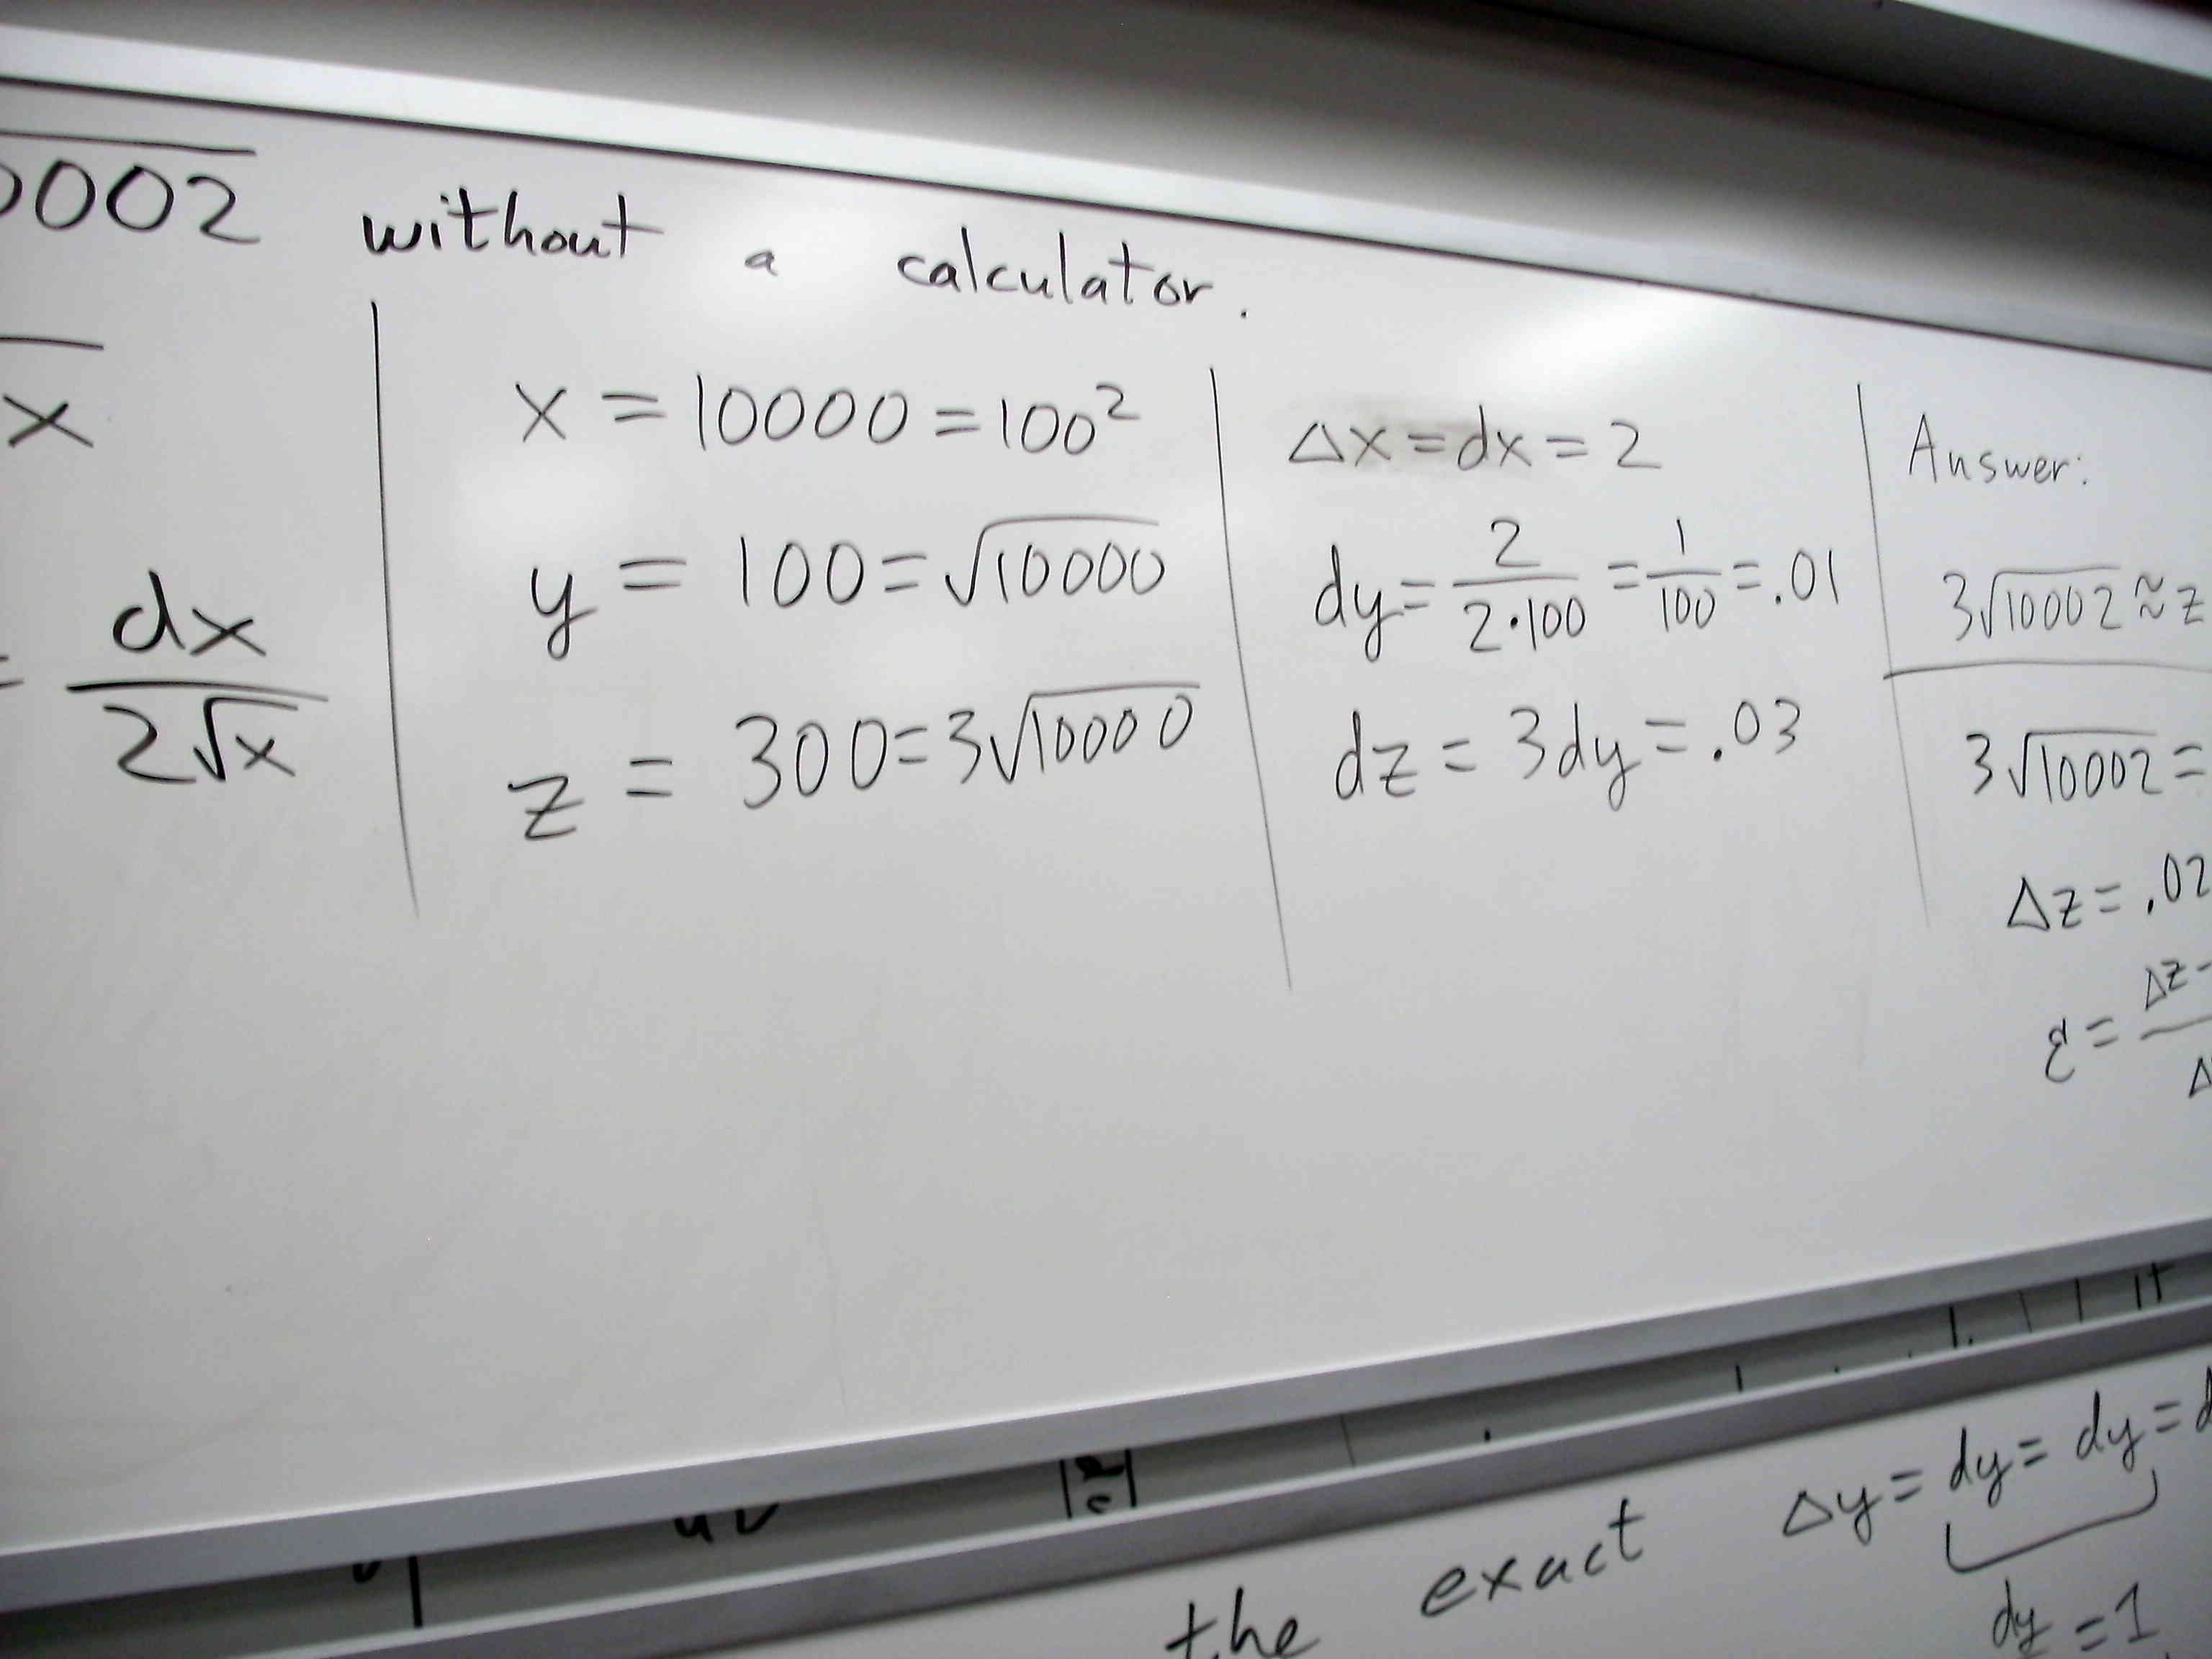 0002 without a calculator.
x
= dx / 2√x
x = 10000 = 100²
y = 100 = √10000
z = 300 = 3√10000
Δx = dx = 2
dy = 2 / 2·100 = 1 / 100 = .01
dz = 3dy = .03
Answer:
3√10002 ≈ z
3√10002 =
Δz = .02
ε = Δz - / Δ
the exact Δy = dy = dy = d
dy = 1